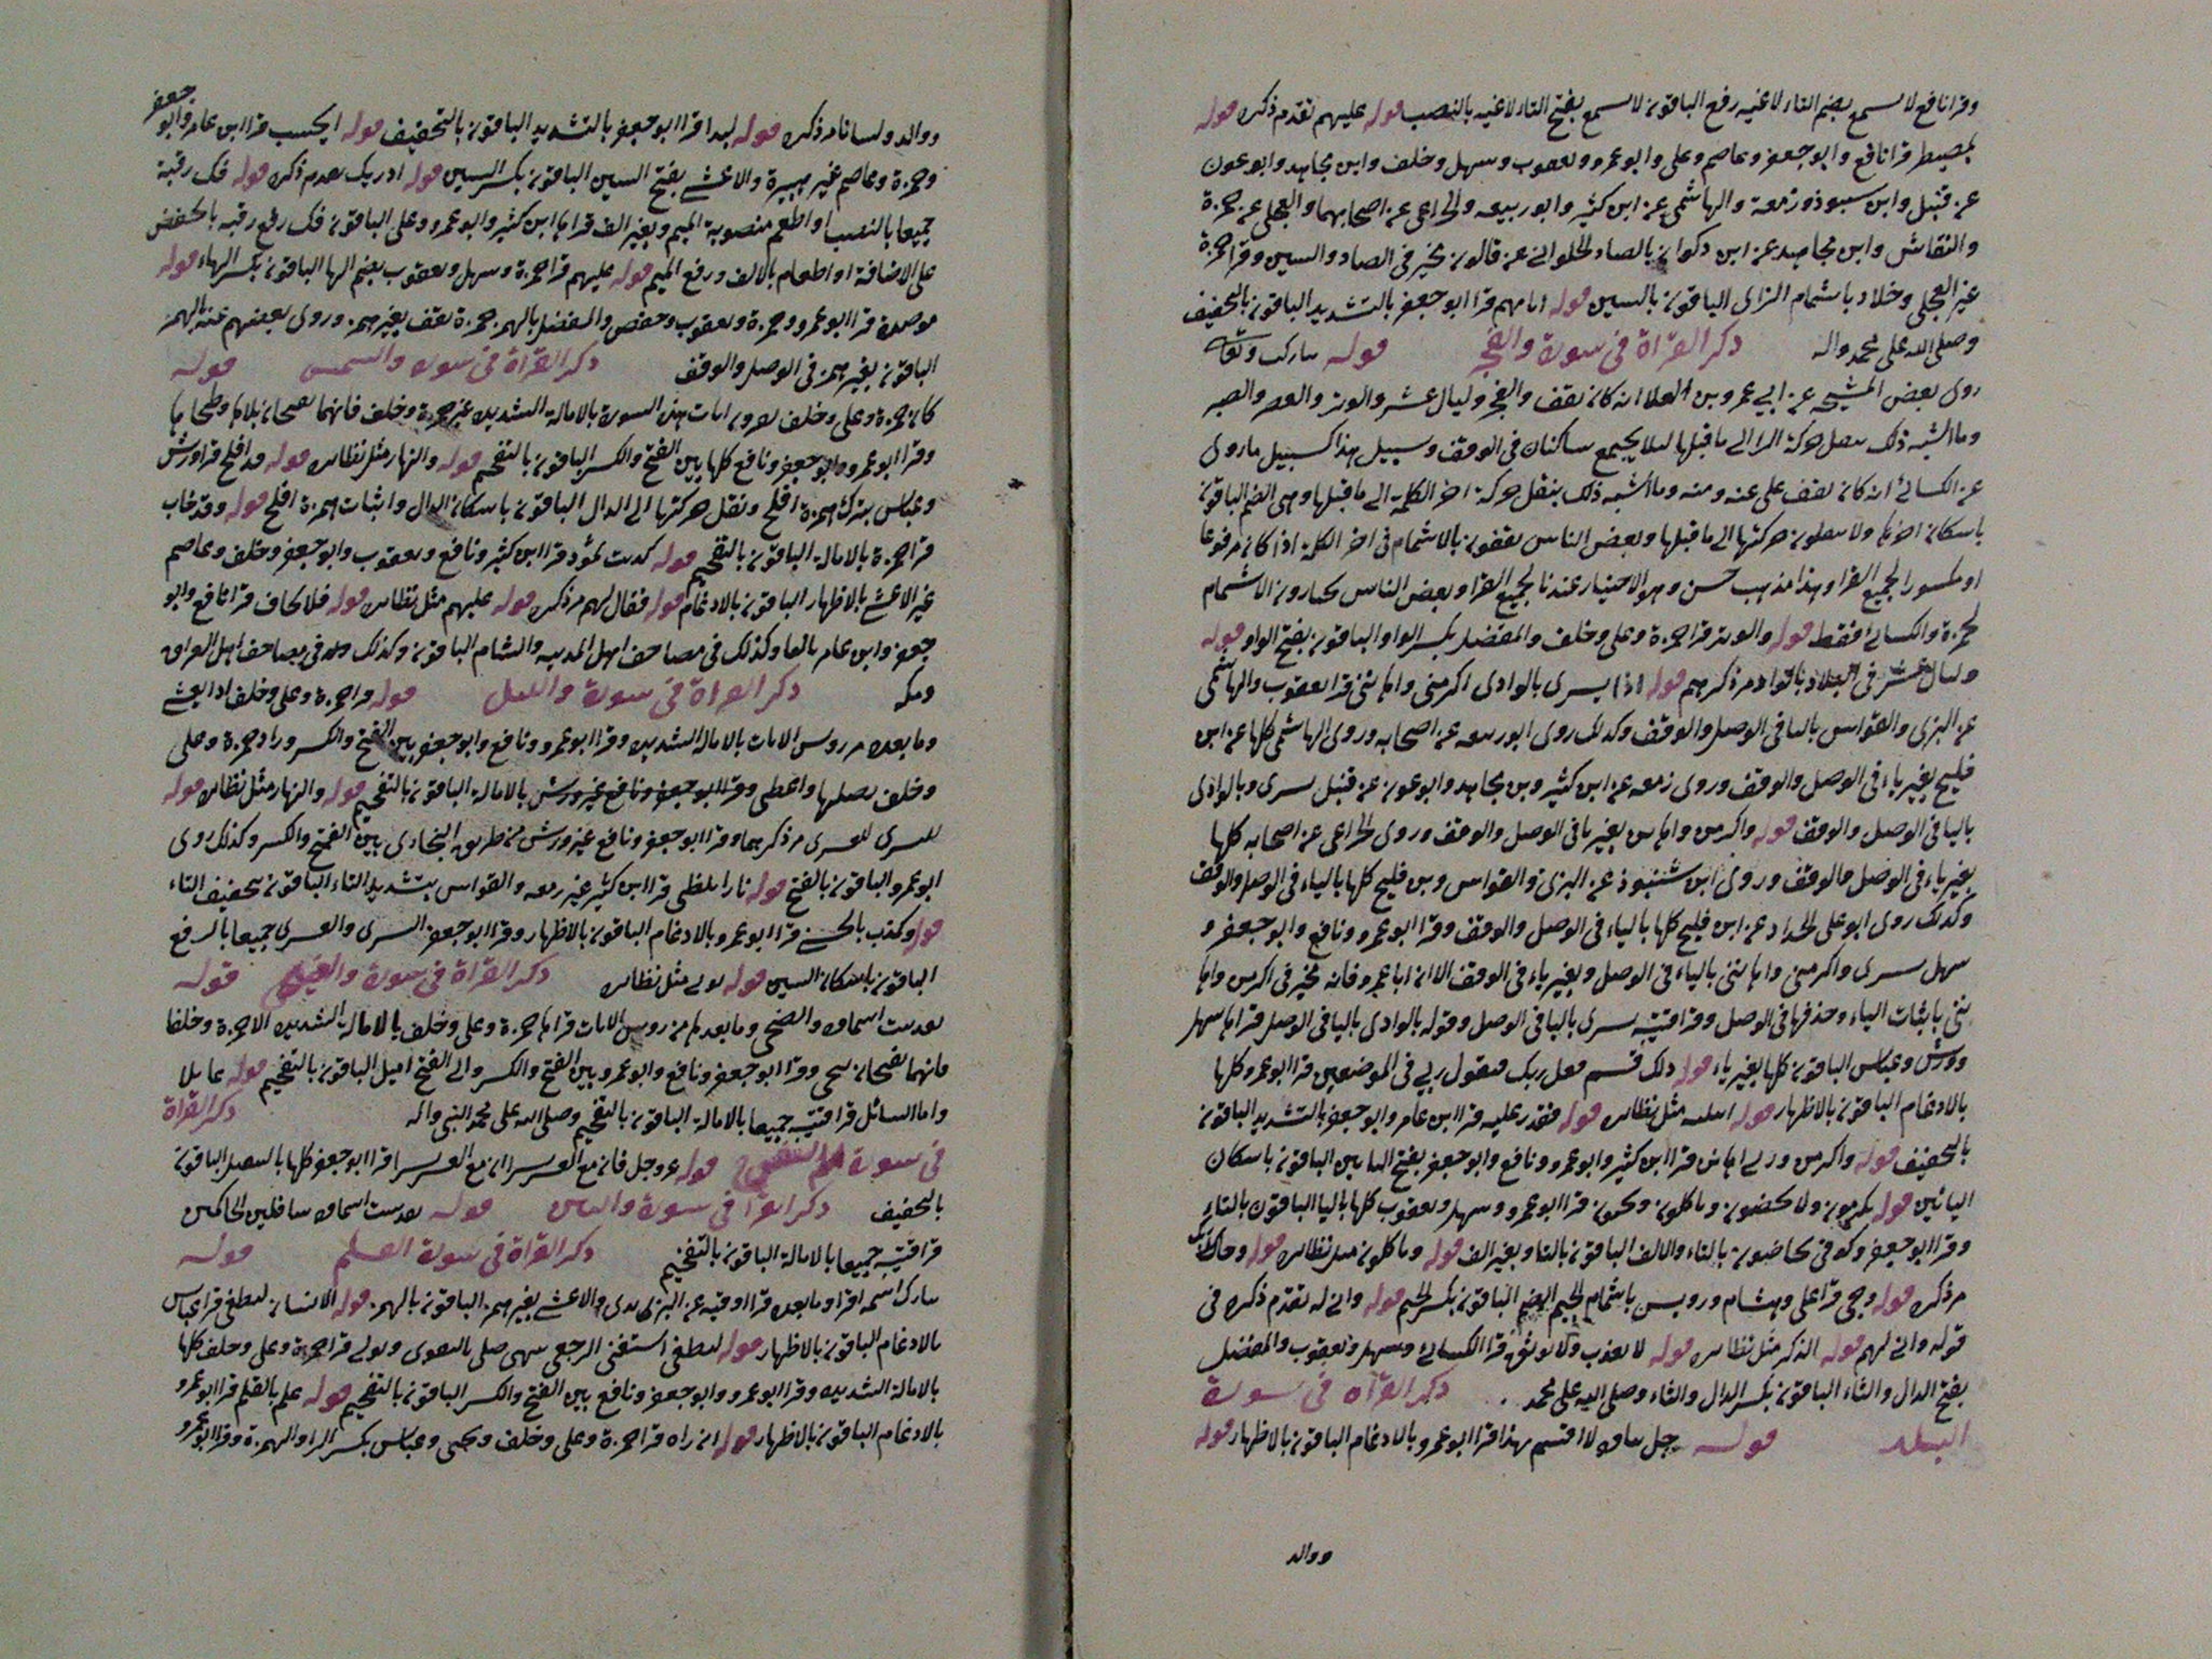 وقرا نافع لا تسمع بضم التاء لاغيه رفع الباقون لا تسمع بفتح التاء لاغيه بالنصب قوله عليهم تقدم ذكره قوله
بمصيطر قرا نافع وابو جعفر وعاصم وعلى وابو عمرو ويعقوب وسهل وخلف وابن مجاهد وابو عون
عن قنبل وابن سنبوذ وزمعة والهاشمى عن ابن كثير وابو ربيعه والخزاعى عن اصحابهما والعجلى عن حمزة
والنقاش وابن مجاهد عن ابن ذكوان بالصاد الحلوانى عن قالون يخير فى الصاد والسين وقرا حمزة
غير العجلى وخلاد باشمام الزاى الباقون بالسين قوله ايابهم قرا ابو جعفر بالتشديد الباقون بالتخفيف
وصلى الله على محمد واله ذكر القراة فى سورة والفجر قوله تبارك وتعالى
روى بعض المشيخه عن ابى عمرو بن العلا انه كان يقف والفجر وليال عشر والوتر والعصر والصبر
وما اشبه ذلك بنقل حركة الرا الى ما قبلها ليلا يجتمع ساكنان فى الوقف وسبيل هذا كسبيل ما روى
عن الكسائى انه كان يقف على عنه ومنه وما اشبه ذلك بنقل حركة اخر الكلمة الى ما قبلها وهى الضم الباقون
باسكان اخرها ولا ينقلون حركتها الى ما قبلها وبعض الناس يقفون بالاشمام فى اخر الكلمة اذا كان مرفوعا
او مكسورا لجميع القرا وهذا مذهب حسن وهو الاختيار عندنا لجميع القرا وبعض الناس يختارون الاشمام
لحمزة والكسائى فقط قوله والوتر قرا حمزة وعلى وخلف والمفضل بكسر الواو الباقون بفتح الواو قوله
وليال عشر فى البلاد بالواد مر ذكرهم قوله اذا يسرى بالوادى اكرمنى واهاننى قرا يعقوب والهاشمى
عن البزى والقواس باليا فى الوصل والوقف وكذلك روى ابو ربيعه عن اصحابه وروى الهاشمى كلها عن ابن
فليح بغير ياء فى الوصل والوقف وروى زمعه عن ابن كثير وبن مجاهد وابو عون عن قنبل يسرى وبالوادى
باليا فى الوصل والوقف قوله واكرمن واهانن بغير يا فى الوصل والوقف وروى الخزاعى عن اصحابه كلها
بغير ياء فى الوصل والوقف وروى ابن شنبوذ عن البزى والقواس وبن فليح كلها بالياء فى الوصل والوقف
وكذلك روى ابو على الحداد عن ابن فليح كلها بالياء فى الوصل والوقف وقرا ابو عمرو ونافع وابو جعفر و
سهل يسرى واكرمنى واهاننى بالياء فى الوصل وبغير ياء فى الوقف الا ان ابا عمرو فانه مخير فى اكرمن واها
ننى باثبات الياء وحذفها فى الوصل وقرا قتيبه يسرى باليا فى الوصل وقوله بالوادى باليا فى الوصل قراها سهل
وورش وعباس الباقون كلها بغير ياء قوله ذلك قسم فعل ربك فيقول ربى فى الموضعين قرا ابو عمرو كلها
بالادغام الباقون بالاظهار قوله ابتليه مثل نظائره قوله فقدر عليه قرا ابن عامر وابو جعفر بالتشديد الباقون
بالتخفيف قوله واكرمن وربى اهانن قرا ابن كثير وابو عمرو ونافع وابو جعفر بفتح اليايين الباقون باسكان
اليائين قوله يكرمون ولا يحضون وياكلون ويحبون قرا ابو عمرو وسهل ويعقوب كلها باليا الباقون بالتاء
وقرا ابو جعفر وكوفى تحاضون بالتاء والالف الباقون بالتا وبغير الف قوله وياكلون مثل نظائره قوله
مر ذكره قوله وجى قرا على وهشام ورويس باشمام الجيم الضم الباقون بكسر الجيم قوله وانى له تقدم ذكره فى
قوله وانى لهم قوله الذكر مثل نظائره قوله لا يعذب ولا يوثق قرا الكسائى وسهل ويعقوب والمفضل
بفتح الدال والثاء الباقون بكسر الدال والثاء وصلى الله على محمد ذكر القراة فى سورة
البلد قوله جل ثناوه لا اقسم بهذا قرا ابو عمرو بالادغام الباقون بالاظهار قوله
ووالد
ووالد ولسانا مر ذكره قوله لبدا قرا ابو جعفر بالتشديد الباقون بالتخفيف قوله ايحسب قرا ابن عامر وابو جعفر
وحمزة وعاصم غير هبيرة والاعشى بفتح السين الباقون بكسر السين قوله ادريك تقدم ذكره قوله فك رقبة
جميعا بالنصب او اطعم منصوبة الميم وبغير الف قراها ابن كثير وابو عمرو وعلى الباقون فك رفع رقبه بالخفض
على الاضافة او اطعام بالالف ورفع الميم قوله عليهم قرا حمزة وسهل ويعقوب بضم الها الباقون بكسر الهاء قوله
موصدة قرا ابو عمرو وحمزة ويعقوب وحفص والمفضل بالهمز حمزة يقف بغير همز وروى بعضهم عنه الهمز
الباقون بغير همز فى الوصل والوقف ذكر القراة فى سورة والشمس قوله
كان حمزة وعلى وخلف يقرون ايات هذه السورة بالامالة الشديدة غير حمزة وخلف فانهما يفتحان تلاها وطحاها
وقرا ابو عمرو وابو جعفر ونافع كلها بين الفتح والكسر الباقون بالتفخيم قوله والنهار مثل نظائره قوله قد افلح قرا ورش
وعباس بترك همزة افلح ونقل حركتها الى الدال الباقون باسكان الدال واثبات همزة افلح قوله وقد خاب
قرا حمزة بالامالة الباقون بالتفخيم قوله كذبت ثمود قرا ابن كثير ونافع ويعقوب وابو جعفر وخلف وعاصم
غير الاعشى بالاظهار الباقون بالادغام قوله فقال لهم مر ذكره قوله عليهم مثل نظائره قوله فلا يخاف قرا نافع وابو
جعفر وابن عامر بالفا وكذلك فى مصاحف اهل المدينه والشام الباقون وكذلك هو فى مصاحف اهل العراق
ومكه ذكر القراة فى سورة والليل قوله قرا حمزة وعلى وخلف اذا يغشى
وما بعده من روس الايات بالامالة الشديدة وقرا ابو عمرو ونافع وابو جعفر بين الفتح والكسر وزاد حمزة وعلى
وخلف يصلها واعطى وقرا ابو جعفر ونافع غير ورش بالامالة الباقون بالتفخيم قوله والنهار مثل نظائره قوله
لليسرى للعسرى مر ذكرهما وقرا ابو جعفر ونافع غير ورش من طريق البخارى بين الفتح والكسر وكذلك روى
ابو عمرو الباقون بالفتح قوله نارا تلظى قرا ابن كثير غير زمعه والقواس بتشديد التاء الباقون بتخفيف التاء
قوله وكذب بالحسنى قرا ابو عمرو بالادغام الباقون بالاظهار وقرا ابو جعفر اليسرى والعسرى جميعا بالرفع
الباقون باسكان السين قوله مثل نظائره ذكر القراة فى سورة والضحى قوله
تقدست اسماؤه والضحى وما بعدها من روس الايات قراها حمزة وعلى وخلف بالامالة الشديدة الا حمزة وخلفا
فانهما يفتحان سجى وقرا ابو جعفر ونافع وابو عمرو بين الفتح والكسر والى الفتح اميل الباقون بالتفخيم قوله عايلا
واما السائل قرا قتيبه جميعا بالامالة الباقون بالتفخيم وصلى الله على محمد النبى واله ذكر القراة
فى سورة الم نشرح قوله عز وجل فان مع العسر يسرا ان مع العسر يسرا قرا ابو جعفر كلها بالتثقيل الباقون
بالتخفيف ذكر القراة فى سورة والتين قوله تقدست اسماؤه سافلين الحاكمين
قرا قتيبه جميعا بالامالة الباقون بالتفخيم ذكر القراة فى سورة العلم قوله
تبارك اسمه اقرا وما بعده قرا اوقيه عن اليزيدى والاعشى بغير همز الباقون بالهمز قوله الانسان ليطغى قرا عباس
بالادغام الباقون بالاظهار قوله ليطغى استغنى الرجعى ينهى صلى بالتقوى وتولى قرا حمزة وعلى وخلف كلها
بالامالة الشديدة وقرا ابو عمرو وابو جعفر ونافع بين الفتح والكسر الباقون بالتفخيم قوله علم بالقلم قرا ابو عمرو
بالادغام الباقون بالاظهار قوله ان راه قرا حمزة وعلى وخلف ويحيى وعباس بكسر الرا والهمزة وقرا ابو عمرو